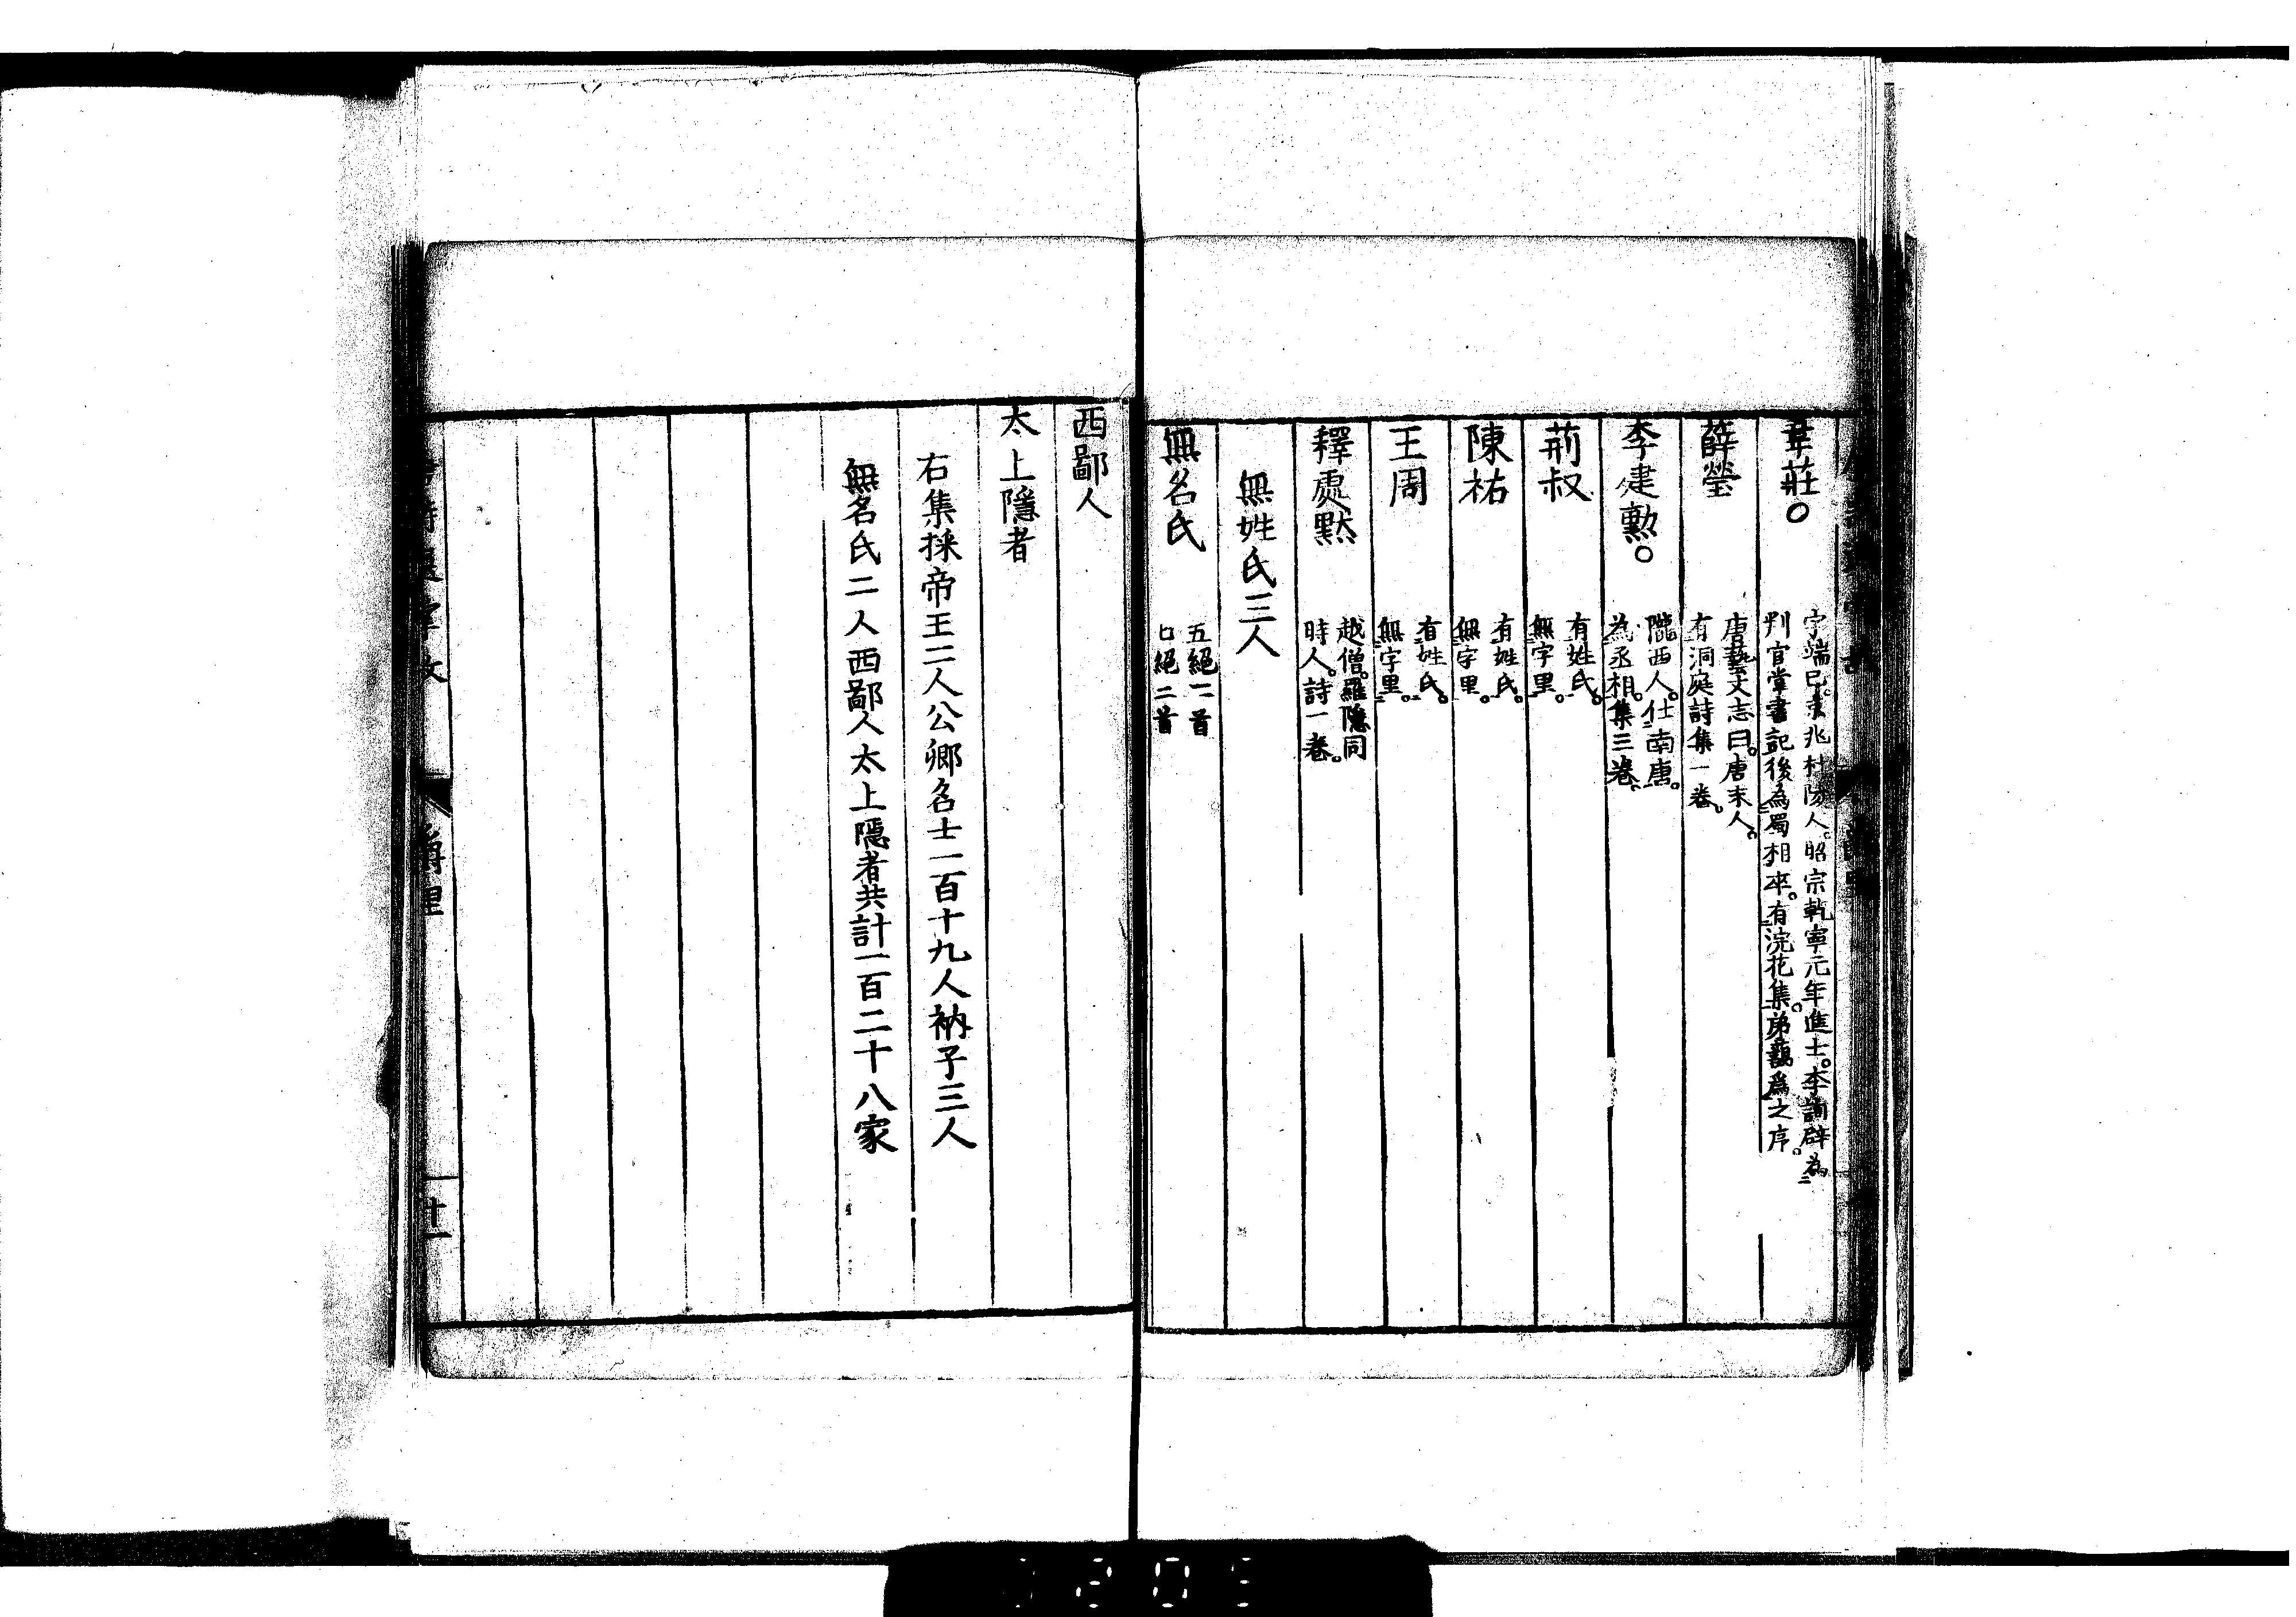 韋莊。
字端已。京兆杜陵人。昭宗乾寧元年進士。李詢辟為
判官掌書記後為蜀相卒。有浣花集。弟藹為之序。
薛瑩
唐藝文志曰。唐末人。
有洞庭詩集一卷。
李建勲。
隴西人。仕南唐。
為丞相。集三卷。
荊叔
有姓氏。
無字里。
陳祐
有姓氏。
無字里。
王周
有姓氏。
無字里。
釋處黙
越僧。羅隱同
時人。詩一卷。
無姓氏三人
無名氏
五絕一首
七絕二首
西鄙人
太上隱者
右集採帝王二人公卿名士一百十九人衲子三人
無名氏二人西鄙人太上隱者共計一百二十八家
爵里
十一